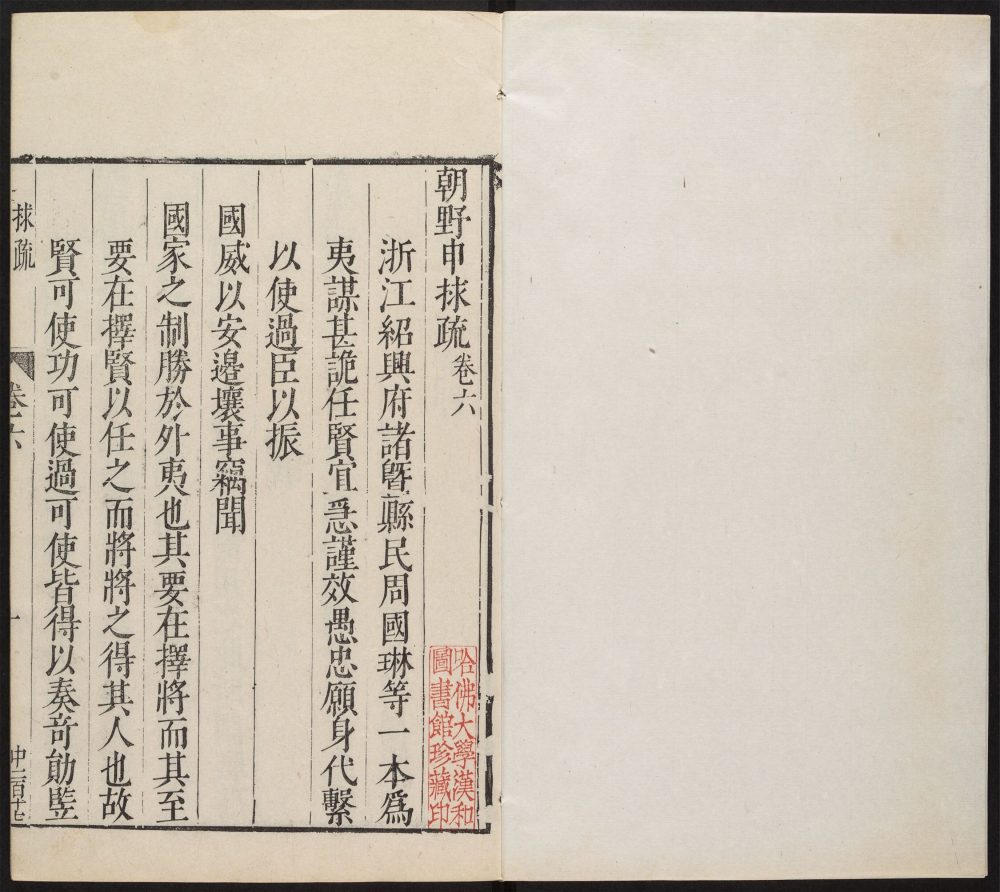 朝野申捄疏卷六
浙江紹興府諸曁縣民周國琳等一本爲
夷謀甚詭任賢宜急謹效愚忠願身代繫
以使過臣以振
國威以安邉壤事竊聞
國家之制勝於外夷也其要在擇將而其至
要在擇賢以任之而將將之得其人也故
賢可使功可使過可使皆得以奏奇勛竪
捄疏
卷六
一
哈佛大學漢和
圖書館珍藏印